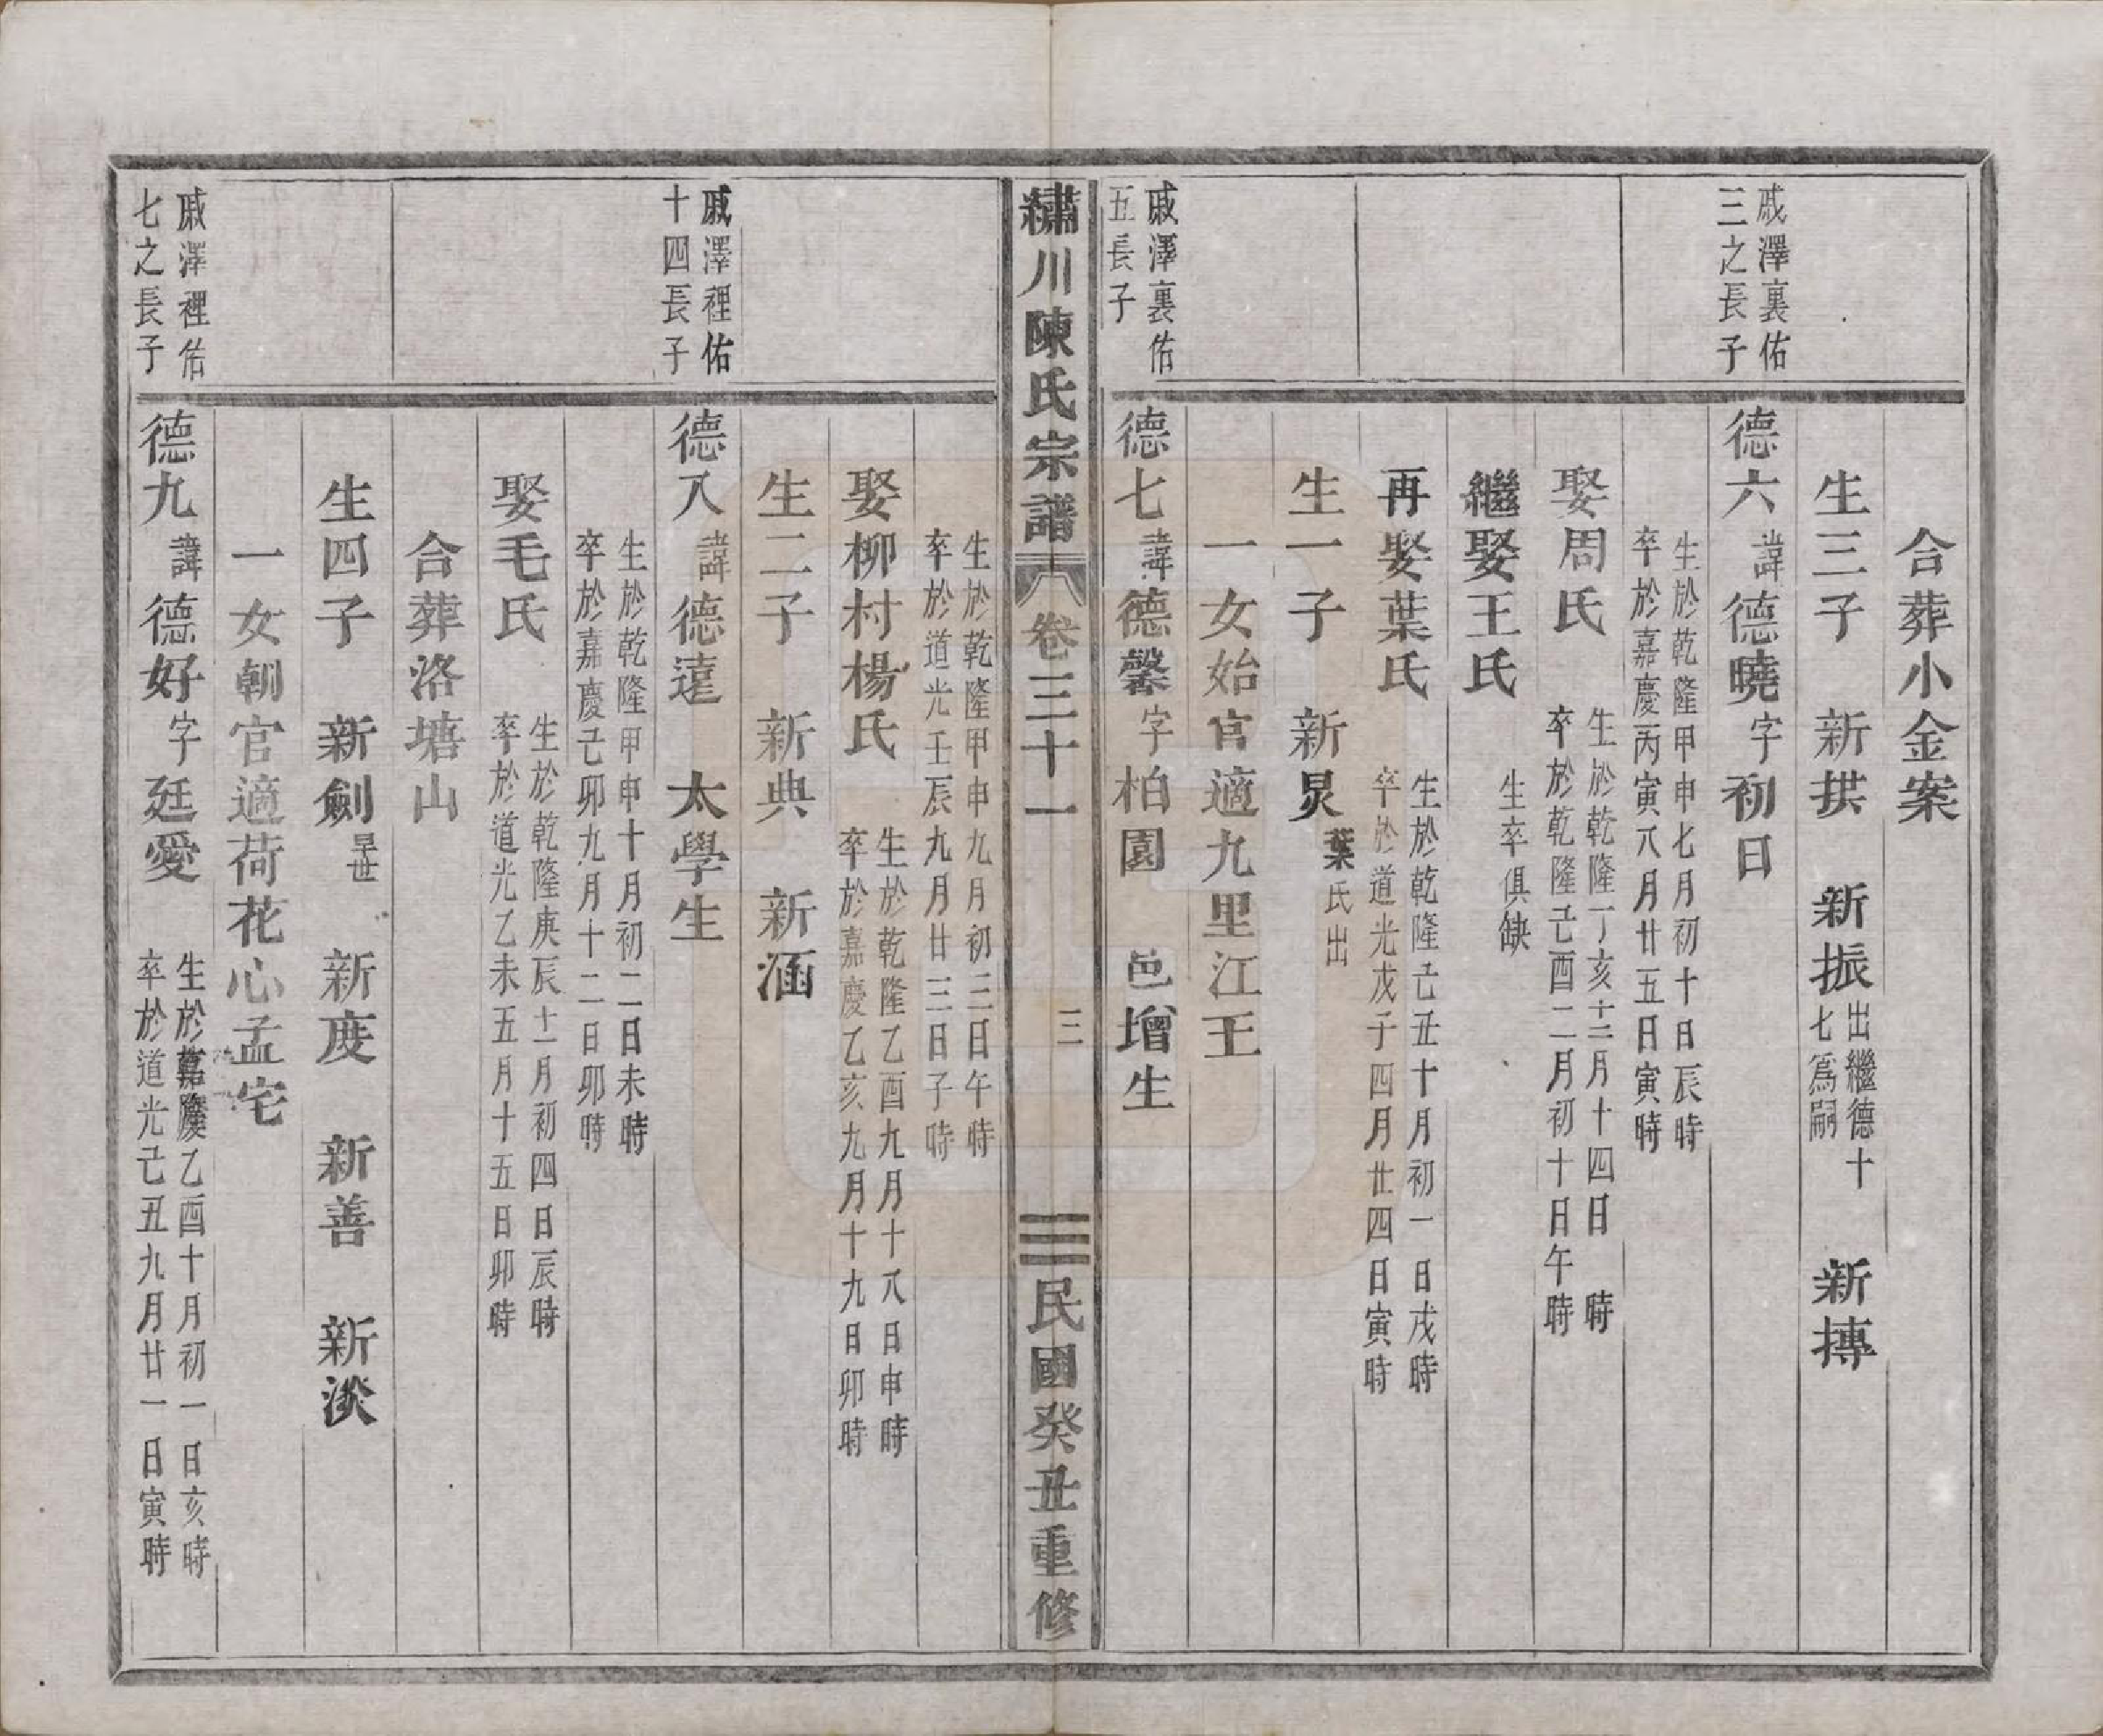 合葬小金案
生三子　新拱　新振出繼德十七爲嗣　新摶
戚澤裏佑三之長子
德六諱德曉字初日
生於乾隆甲申七月初十日辰時
卒於嘉慶丙寅八月廿五日寅時
娶周氏
生於乾隆丁亥十二月十四日　時
卒於乾隆己酉二月初十日午時
繼娶王氏　生卒俱缺
再娶葉氏
生於乾隆己丑十月初一日戌時
卒於道光戊子四月廿四日寅時
生一子　新炅葉氏出
一女始官適九里江王
戚澤裏佑五長子
德七諱德馨字柏園　邑增生
繡川陳氏宗譜　卷三十一　三　民國癸丑重修
生於乾隆甲申九月初三日午時
卒於道光壬辰九月廿三日子時
娶柳村楊氏
生於乾隆乙酉九月十八日申時
卒於嘉慶乙亥九月十九日卯時
生二子　新典　新涵
戚澤裡佑十四長子
德八諱德達　太學生
生於乾隆甲申十月初二日未時
卒於嘉慶己卯九月十二日卯時
娶毛氏
生於乾隆庚辰十二月初四日辰時
卒於道光乙未五月十五日卯時
合葬洛塘山
生四子　新劍早世　新度　新善　新淡
一女朝官適荷花心孟宅
戚澤裡佑七之長子
德九諱德好字廷愛
生於乙酉十月初一日亥時
卒於道光己丑九月廿一日寅時